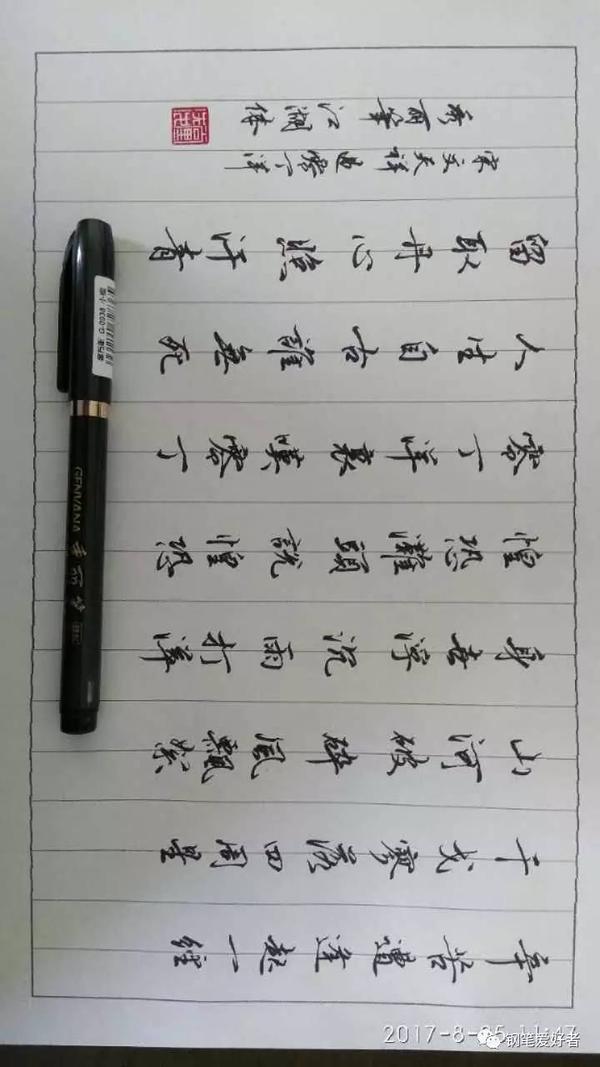 辛苦遭逢起一經
干戈寥落四周星
山河破碎風飄絮
身世浮沉雨打萍
惶恐灘頭說惶恐
零丁洋裏嘆零丁
人生自古誰無死
留取丹心照汗青
宋文天祥過零丁洋
秀丽筆江湖体
GENVANA 秀丽笔
2017-8-25 11:47
钢笔爱好者